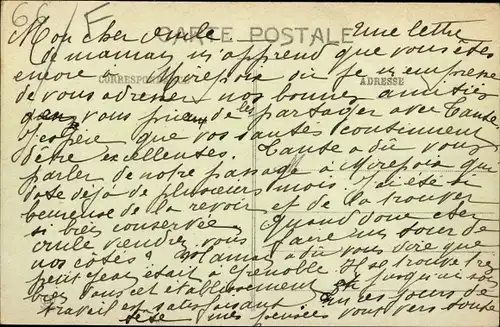 66/E
CARTE POSTALE
CORRESPONDANCE
ADRESSE
Mon cher oncle Une lettre
de maman m'apprend que vous êtes
encore à Mirepoix où je m'empresse
de vous adresser nos bonnes amitiés
vous priant de les partager avec Tante
J'espère que vos santés continuent
d'être excellentes. Tante a dû vous
parler de notre passage à Mirepoix qui
date déjà de plusieurs mois. J'ai été si
heureuse de la revoir et de la trouver
si bien conservée. Quand donc cher
oncle viendrez vous faire un tour de
nos côtés? Maman a dû vous dire que
petit Jean était à Grenoble. Il se trouve très
bien dans cet établissement et jusqu'ici son
travail est satisfaisant En ces jours de
fête mes pensées vont vers toute